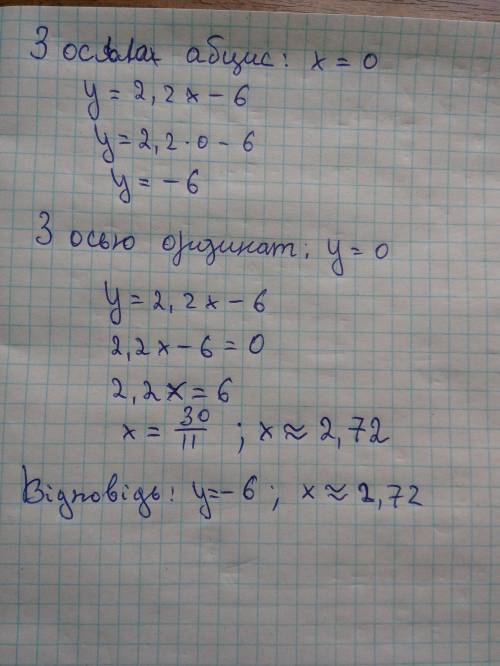 З абцис: x = 0
y = 2,2x - 6
y = 2,2·0 - 6
y = -6
З осью ординат: y = 0
y = 2,2x - 6
2,2x - 6 = 0
2,2x = 6
x = 30/11 ; x ≈ 2,72
Відповідь: y=-6 ; x ≈ 2,72